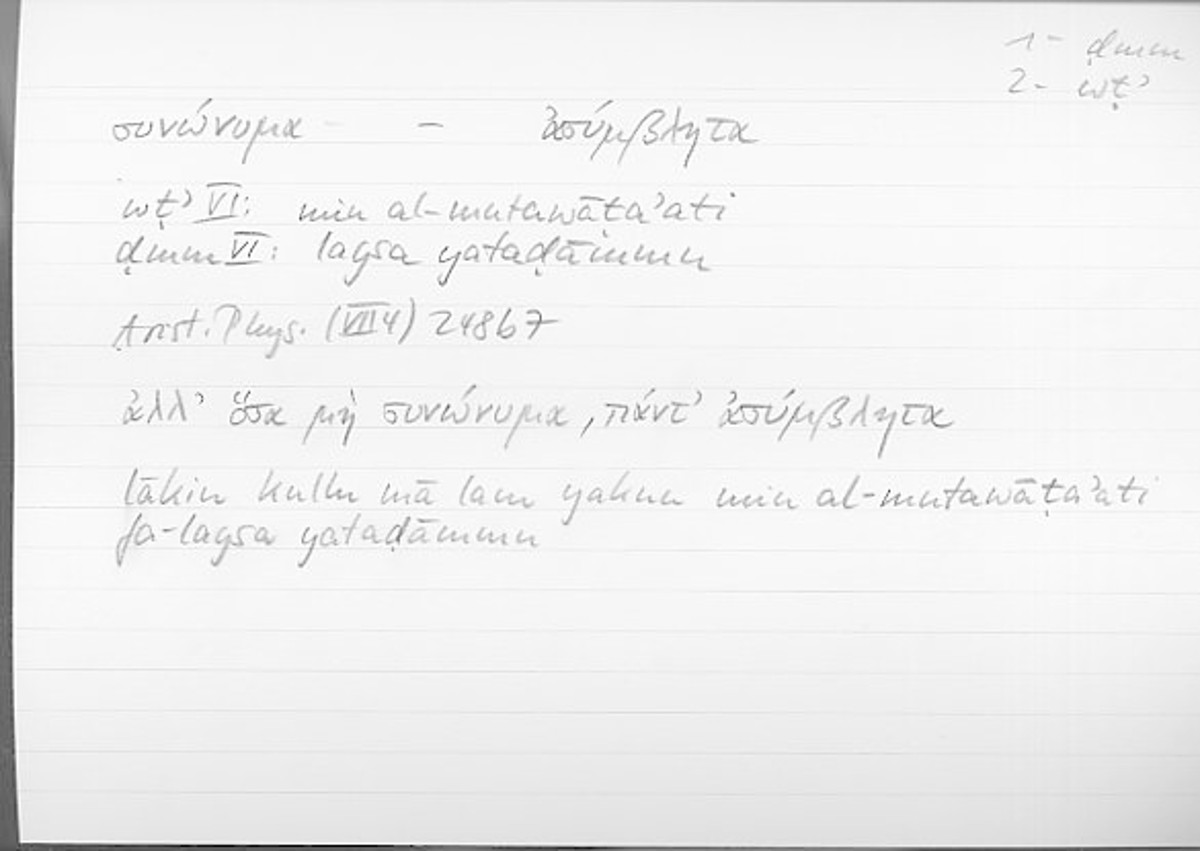 1- ḍmm
2- wṭʾ
συνώνυμα - ἀσύμβλητα
wṭʾ VI: min al-mutawāṭaʾati
ḍmm VI: laysa yataḍāmmu
Arist. Phys. (VII 4) 248b7
ἀλλʼ ὅσα μὴ συνώνυμα, πάντʼ ἀσύμβλητα
lākin kullu mā lam yakun min al-mutawāṭaʾati
fa-laysa yataḍāmmu